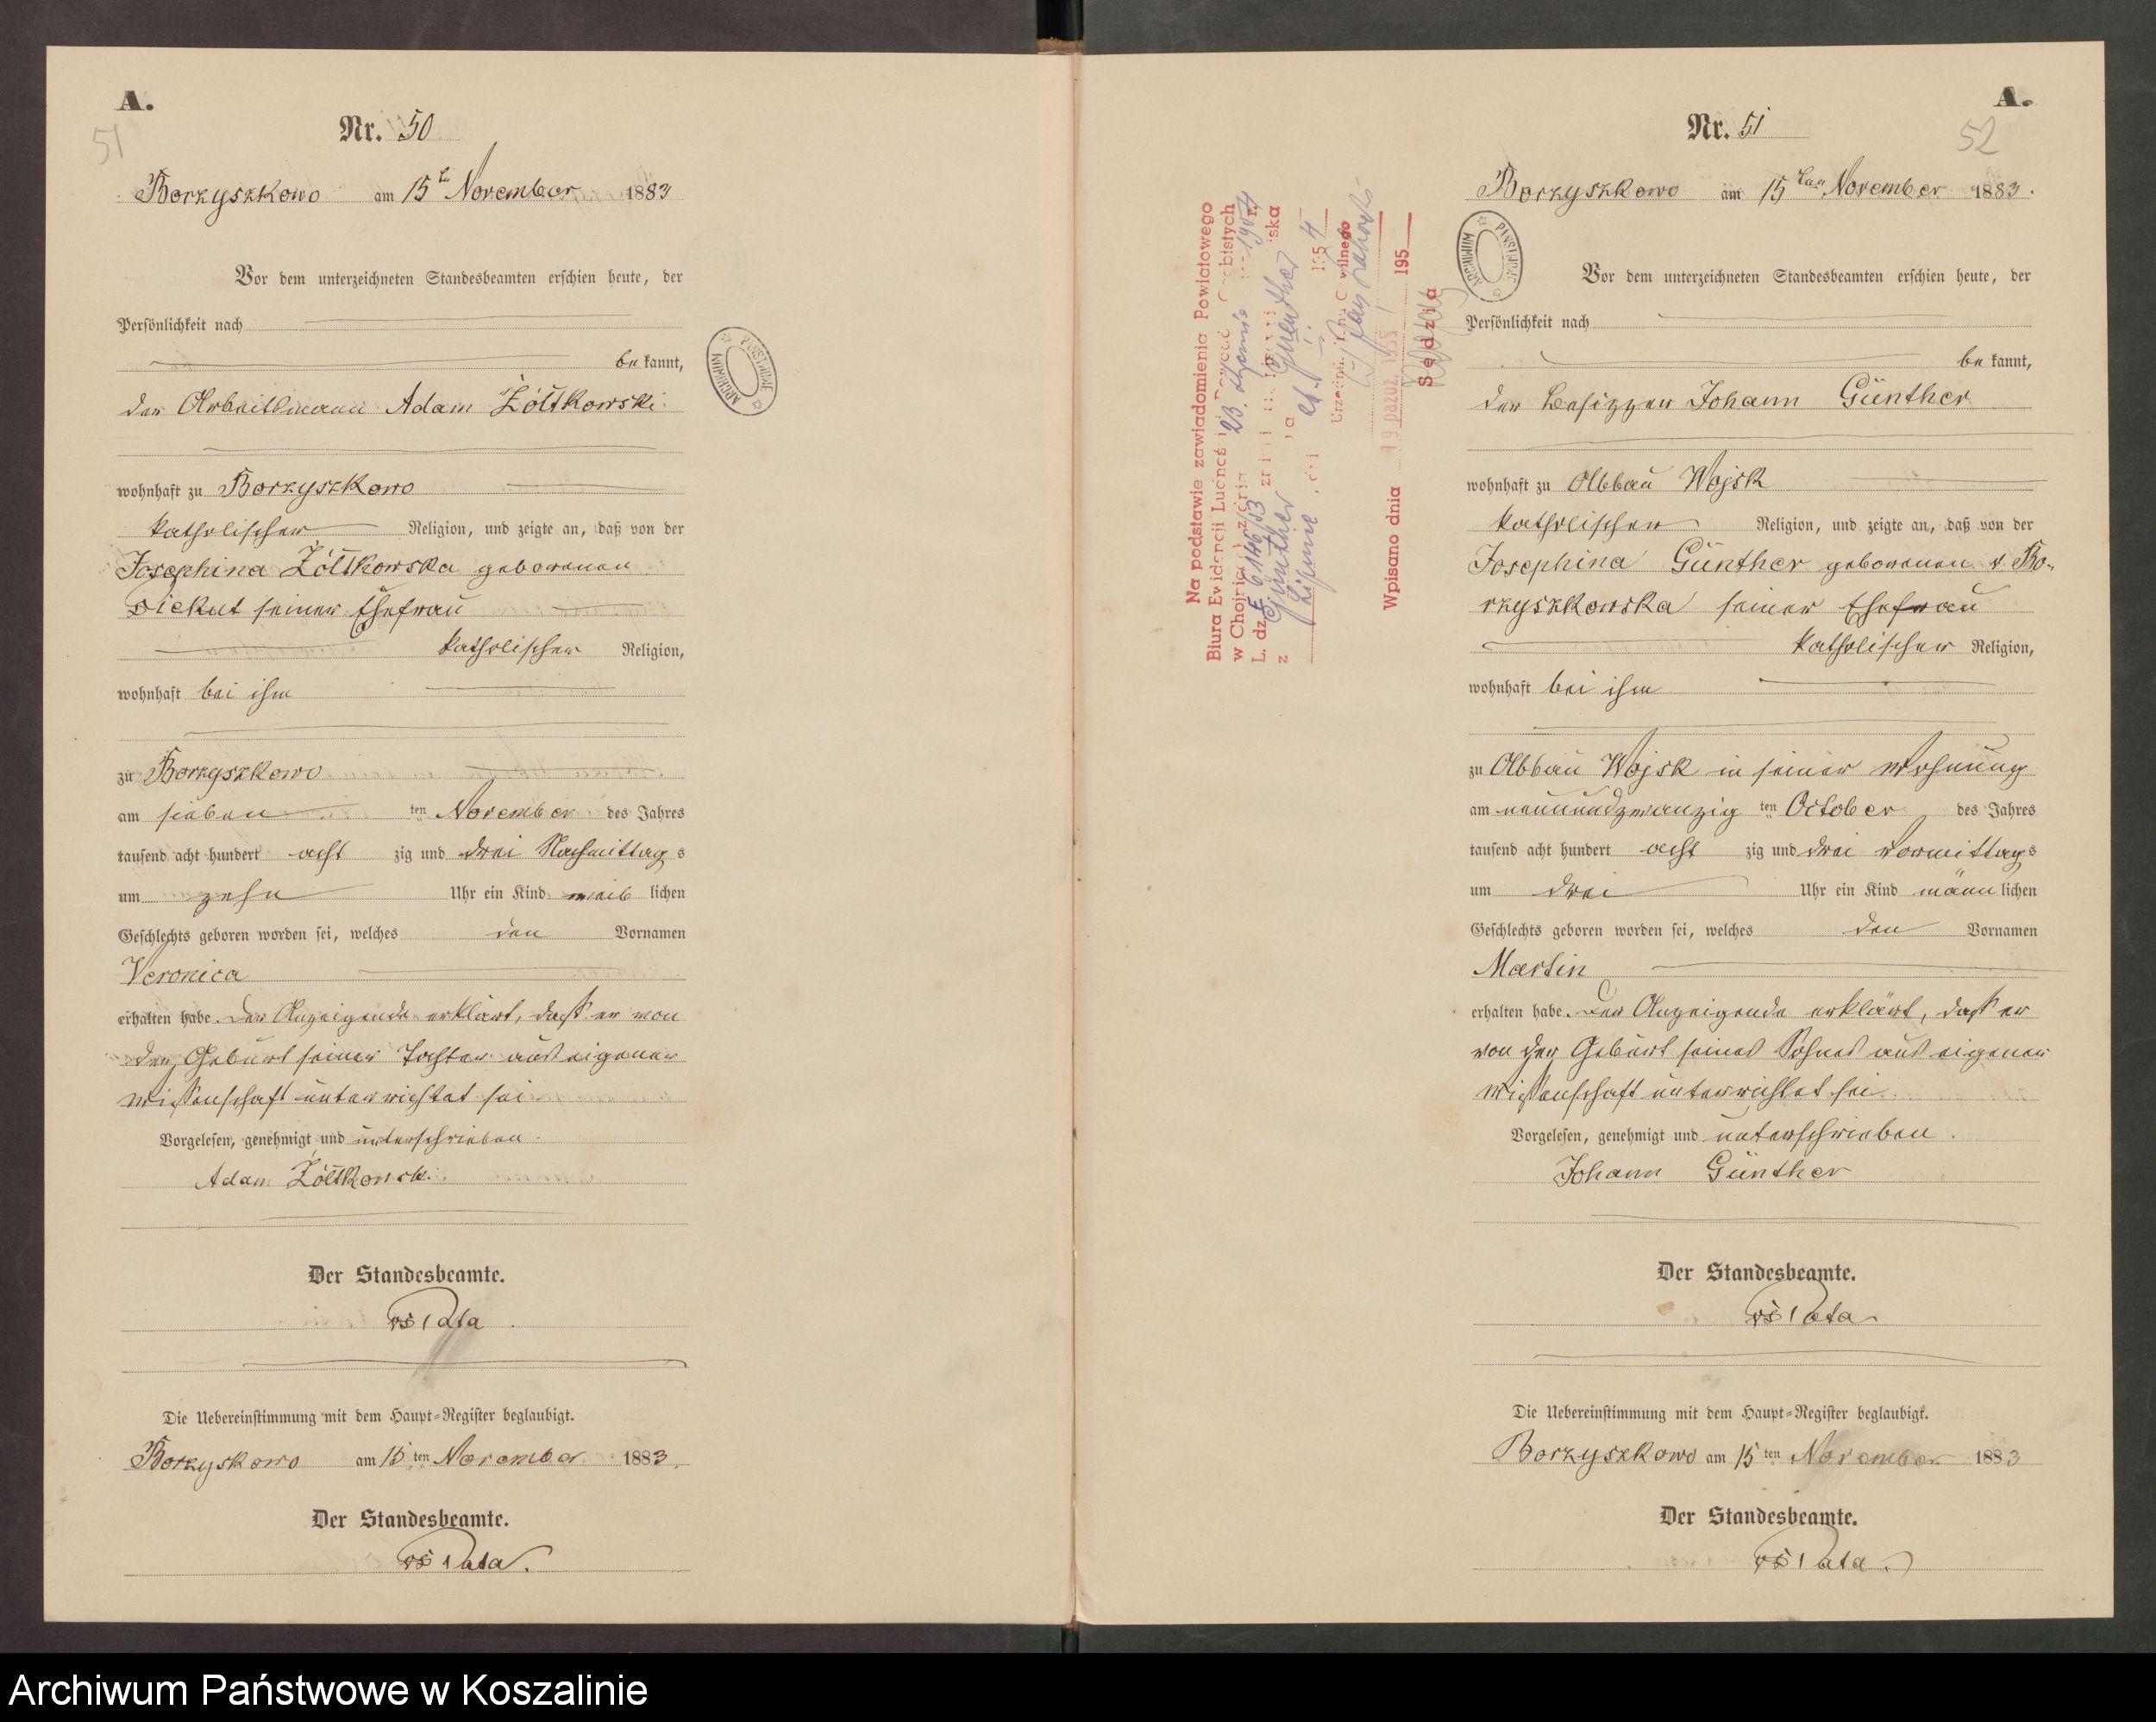 A.
51
Nr. 50
Borzyszkowo am 15 ten November 1883
Vor dem unterzeichneten Standesbeamten erschien heute, der
Persönlichkeit nach
be kannt,
der Arbeitsmann Adam Żółtkowski
wohnhaft zu Borzyszkowo
katholischer Religion, und zeigte an, daß von der
Josephina Żółtkowska geborenen
seiner Ehefrau
katholischer Religion,
wohnhaft bei ihm
zu Borzyszkowo
am sieben ten November des Jahres
tausend acht hundert acht zig und drei Nachmittag s
um zehn Uhr ein Kind weib lichen
Geschlechts geboren worden sei, welches den Vornamen
Veronica
erhalten habe. Der Anzeigende erklärt, daß er von
der Geburt seiner Tochter aus eigener
Wissenschaft unterrichtet sei
Vorgelesen, genehmigt und unterschrieben.
Adam Żółtkowski
Der Standesbeamte.
Die Uebereinstimmung mit dem Haupt-Register beglaubigt.
Borzyskowo am 15 ten November 1883.
Der Standesbeamte.
ARCHIWUM PAŃSTWOWE
Na podstawie zawiadomienia Powiatowego
Biura Ewidencji Ludności i Dowodów Osobistych
w Chojnicach z dnia 23. stycznia 1954 r.
L. dz. E 6146/53
z Günther
Lipienie
195 4
Urzędnik Stanu Cywilnego
Wpisano dnia 19 paźdz. 1955 195
Sędzia
ARCHIWUM PAŃSTWOWE
A.
52
Nr. 51
Borzyszkowo am 15 ten November 1883.
Vor dem unterzeichneten Standesbeamten erschien heute, der
Persönlichkeit nach
be kannt,
der Besitzer Johann Günther
wohnhaft zu Abbau Wojsk
katholischer Religion, und zeigte an, daß von der
Josephina Günther geborenen v. Bo-
rzyszkowska seiner Ehefrau
katholischer Religion,
wohnhaft bei ihm
zu Abbau Wojsk in seiner Wohnung
am neunundzwanzig ten October des Jahres
tausend acht hundert acht zig und drei Vormittag s
um drei Uhr ein Kind männ lichen
Geschlechts geboren worden sei, welches den Vornamen
Martin
erhalten habe. Der Anzeigende erklärt, daß er
von der Geburt seines Sohnes aus eigener
Wissenschaft unterrichtet sei.
Vorgelesen, genehmigt und unterschrieben.
Johann Günther
Der Standesbeamte.
Die Uebereinstimmung mit dem Haupt-Register beglaubigt.
Borzyszkowo am 15 ten November 1883
Der Standesbeamte.
Archiwum Państwowe w Koszalinie